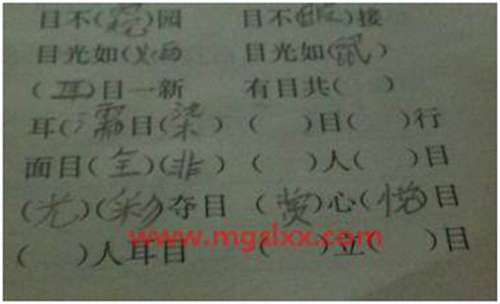 目不(窥)园 目不(暇)接
目光如(炬) 目光如(鼠)
(耳)目一新 有目共( )
耳(濡)目(染) ( )目( )行
面目(全)(非) ( )人( )目
(光)(彩)夺目 (赏)心(悦)目
www.mgzlxx.com
( )人耳目 ( )立( )目